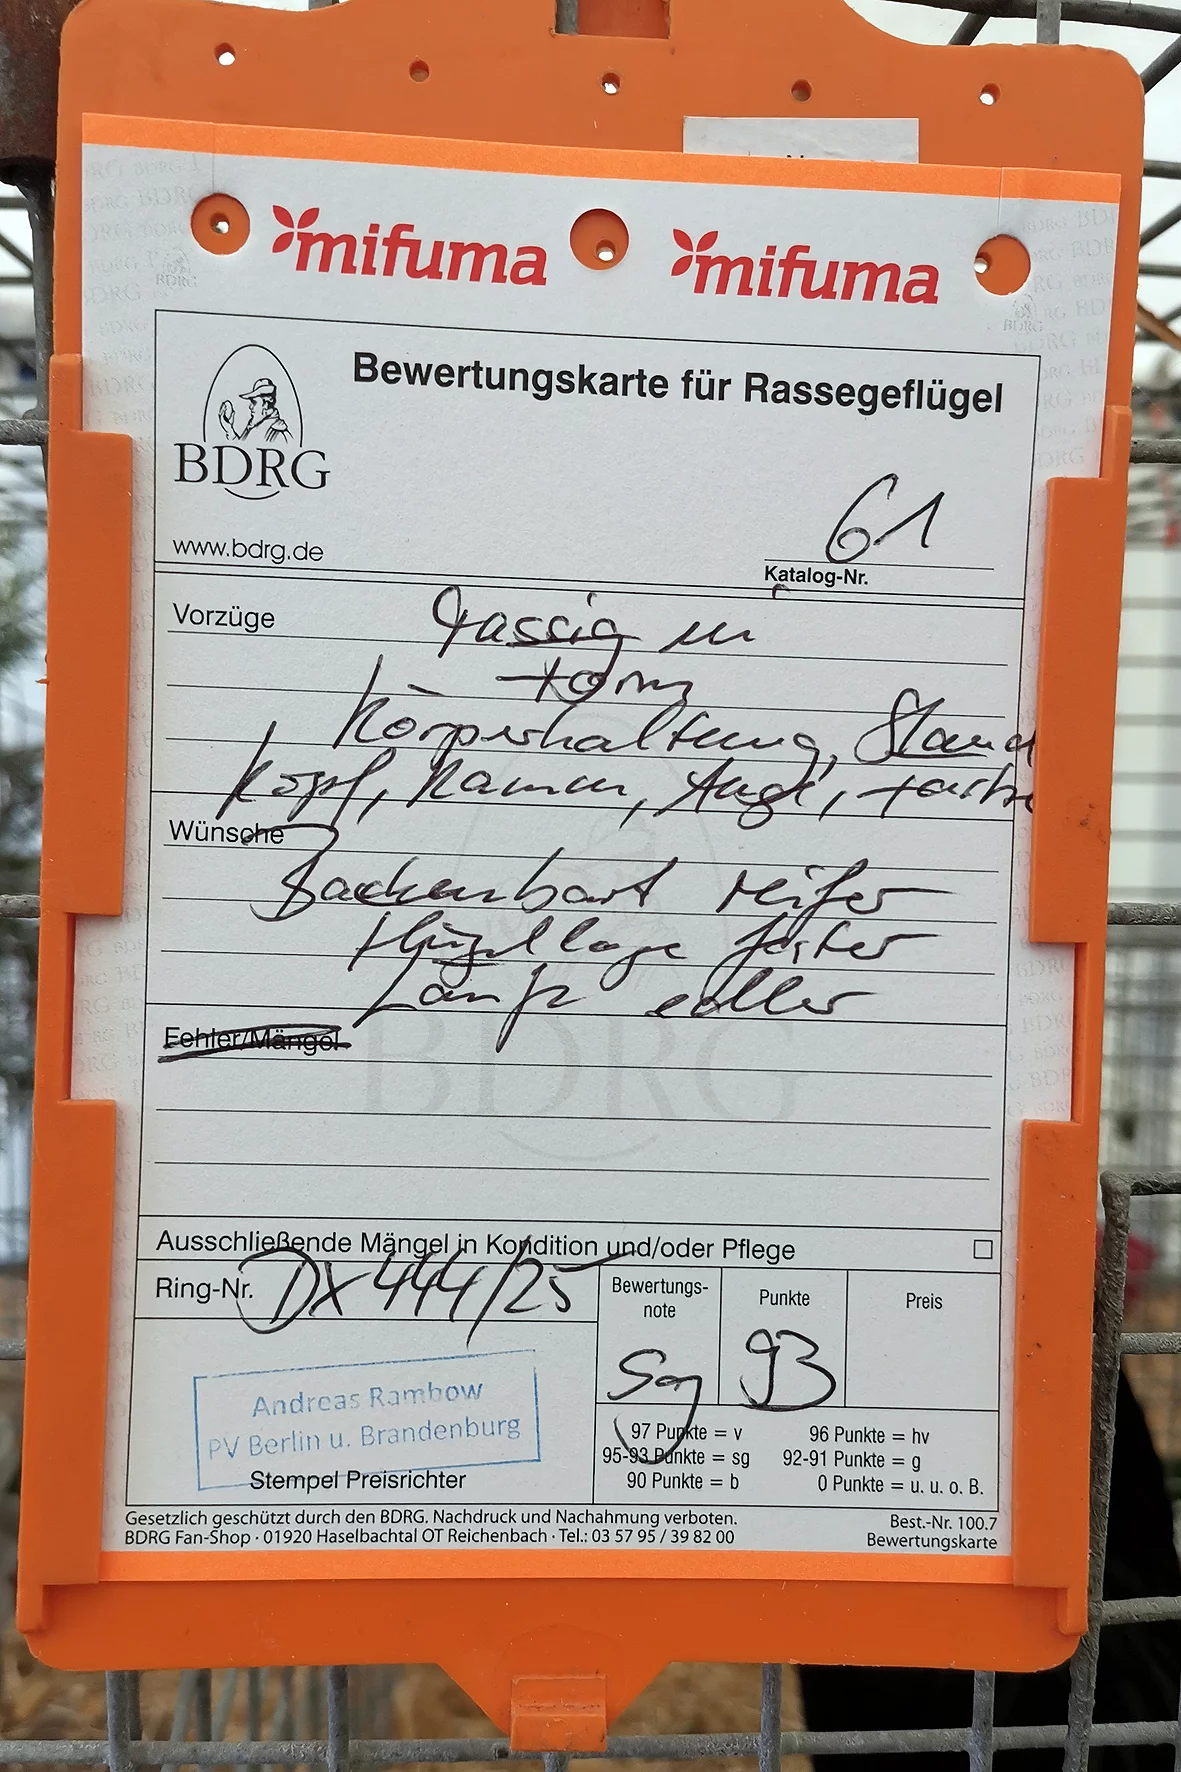 mifuma mifuma
Bewertungskarte für Rassegeflügel
BDRG
www.bdrg.de
61
Katalog-Nr.
Vorzüge
rassig in
Form
Körperhaltung, Stand
Kopf, Kamm, Auge, Farbe
Wünsche
Backenbart reifer
Flügellage fester
Läufe edler
Fehler/Mängel
BDRG
Ausschließende Mängel in Kondition und/oder Pflege
Ring-Nr. DX 444/25
Bewertungs-
note
Punkte
Preis
Sg
93
Andreas Rambow
PV Berlin u. Brandenburg
Stempel Preisrichter
97 Punkte = v 96 Punkte = hv
95-93 Punkte = sg 92-91 Punkte = g
90 Punkte = b 0 Punkte = u. u. o. B.
Gesetzlich geschützt durch den BDRG. Nachdruck und Nachahmung verboten.
BDRG Fan-Shop · 01920 Haselbachtal OT Reichenbach · Tel.: 03 57 95 / 39 82 00
Best.-Nr. 100.7
Bewertungskarte